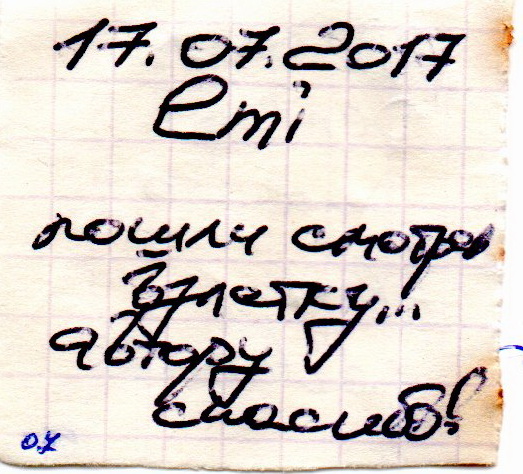 17.07.2017
emi
пошли смотре
взлетку...
автору
спасиб!
07